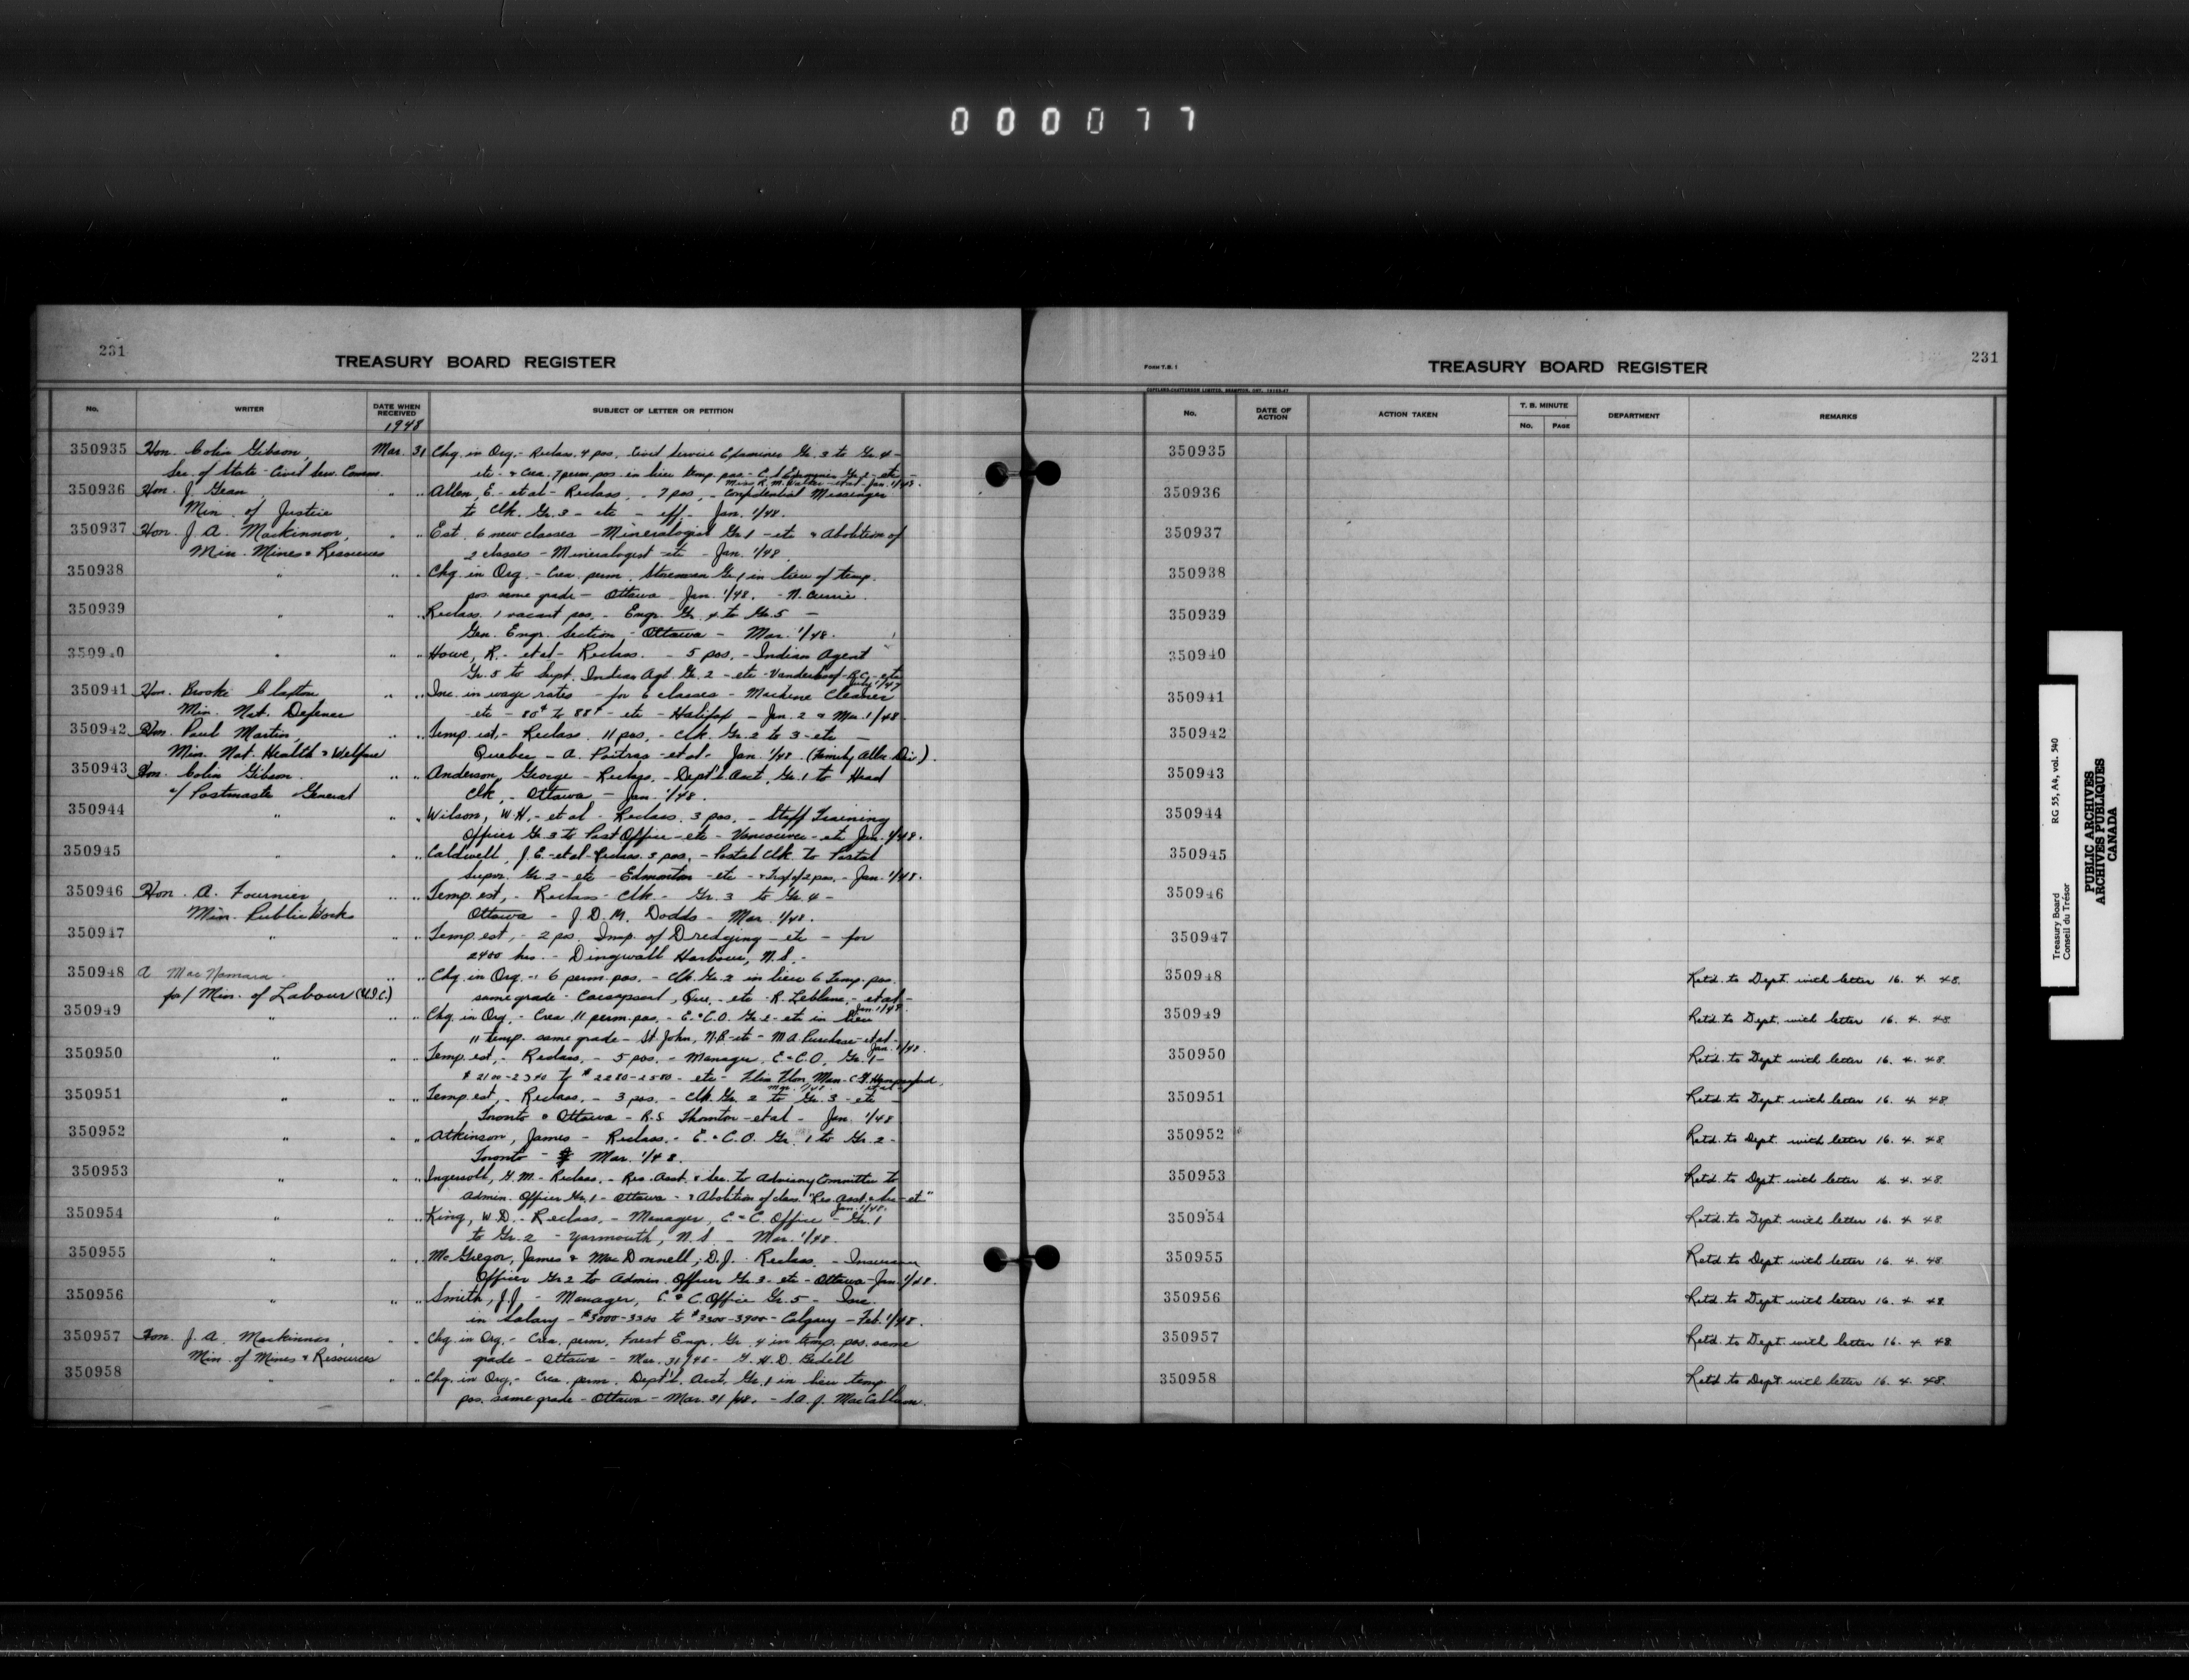 000077
231
TREASURY BOARD REGISTER
No. WRITER DATE WHEN RECEIVED SUBJECT OF LETTER OR PETITION
1948
350935 Hon. Colin Gibson, Mar. 31 Chg. in Org. - Reclass. 4 pos. Civil Service Examiner Gr. 3 to Gr. 4 -
Sec. of State - Civil Serv. Comm. etc. & Crea. 7 perm. pos. in lieu temp. pos. - C.S. Examiner Gr. 2 - etc -
Miss R. M. Walter - et al - Jan. 1/48.
350936 Hon. J. " .. Allen, E. - et al - Reclass. - 7 pos. - Confidential Messenger
Min. of Justice to Clk. Gr. 3 - etc - eff. Jan. 1/48.
350937 Hon. J. A. Mackinnon, " .. Est. 6 new classes - Mineralogist Gr. 1 - etc & Abolition of
Min. Mines & Resources 2 classes - Mineralogist - etc - Jan. 1/48.
350938 " " .. Chg. in Org. - Crea. perm. Storeman Gr. 1 in lieu of temp.
pos. same grade - Ottawa - Jan. 1/48. - N. Currie.
350939 " " .. Reclass. 1 vacant pos. - Engr. Gr. 4 to Gr. 5 -
Gen. Engr. Section - Ottawa - Mar. 1/48.
350940 " " .. Howe, R. - et al - Reclass. - 5 pos. - Indian Agent
Gr. 5 to Supt. Indian Agt. Gr. 2 - etc - Vanderhoof - B.C. - etc
July 1/47
350941 Hon. Brooke Claxton " .. Inc. in wage rates - for 6 classes - Machine Cleaner
Min. Nat. Defence - etc - 80¢ to 88¢ - etc - Halifax - Jan. 2 & Mar. 1/48.
350942 Hon. Paul Martin, " .. Temp. est. - Reclass. 11 pos. - Clk. Gr. 2 to 3 - etc -
Min. Nat. Health & Welfare Quebec - A. Poitras - et al - Jan. 1/48. (Family Allce. Div.).
350943 Hon. Colin Gibson. " .. Anderson, George - Reclass. - Dept'l. Acct. Gr. 1 to Head
a/ Postmaster General Clk. - Ottawa - Jan. 1/48.
350944 " " .. Wilson, W.H. - et al - Reclass. 3 pos. - Staff Training
Officer Gr. 3 to Post Office - etc - Vancouver - etc Jan. 1/48.
350945 " " .. Caldwell, J.E. - et al - Reclass. 3 pos. - Postal Clk. to Postal
Super. Gr. 2 - etc - Edmonton - etc - & 2 pos. - Jan. 1/48.
350946 Hon. A. Fournier, " .. Temp. est. - Reclass - Clk. - Gr. 3 to Gr. 4 -
Min. Public Works Ottawa - J. D. M. Dodds - Mar. 1/48.
350947 " " .. Temp. est. - 2 pos. Insp. of Dredging - etc - for
2400 hrs. - Dingwall Harbour, N.S. -
350948 A MacNamara - " .. Chg. in Org. - 6 perm. pos. - Clk. Gr. 2 in lieu 6 temp. pos.
for/ Min. of Labour (U.I.C.) same grade - Que. - etc - R. Leblanc, - et al -
Jan. 1/48.
350949 " " .. Chg. in Org. - Crea. 11 perm. pos. - E. & C.O. Gr. 2 - etc in lieu
11 temp. same grade - St. John, N.B. - etc - M.A. Purchase - et al -
Jan. 1/48.
350950 " " .. Temp. est. - Reclass. - 5 pos. - Manager, E. & C.O. Gr. 1 -
$2100-2340 to $2280-2580 - etc - Flin Flon, Man. - et al
Mar. 1/48
350951 " " .. Temp. est. - Reclass. - 3 pos. - Clk. Gr. 2 to Gr. 3 - etc -
Toronto & Ottawa - R.S. Thornton - et al - Jan. 1/48
350952 " " .. Atkinson, James - Reclass. - E. & C.O. Gr. 1 to Gr. 2 -
Toronto - Mar. 1/48.
350953 " " .. Ingersoll, G.M. - Reclass. - Res. Asst. & Sec. to Advisory Committee to
Admin. Officer Gr. 1 - Ottawa - & Abolition of class. "Res. Asst. & Sec - et"
Jan. 1/48.
350954 " " .. King, W.D. - Reclass. - Manager, E. & C. Office - Gr. 1
to Gr. 2 - Yarmouth, N.S. - Mar. 1/48.
350955 " " .. McGregor, James & MacDonnell, D.J. - Reclass. - Insurance
Officer Gr. 2 to Admin. Officer Gr. 3 - etc - Ottawa - Jan. 1/48.
350956 " " .. Smith, J.J. - Manager, E. & C. Office Gr. 5 - Inc.
in Salary - $3000-3300 to $3300-3900 - Calgary - Feb. 1/48.
350957 Hon. J. A. Mackinnon, " .. Chg. in Org. - Crea. perm. Forest Engr. Gr. 4 in temp. pos. same
Min. of Mines & Resources grade - Ottawa - Mar. 31/48 - G. H. D. Bedell
350958 " " .. Chg. in Org. - Crea. perm. Dept'l. Acct. Gr. 1 in lieu temp.
pos. same grade - Ottawa - Mar. 31/48. - S.A. J. MacCallum.
231
FORM T.B. 1
TREASURY BOARD REGISTER
No. DATE OF ACTION ACTION TAKEN T. B. MINUTE No. PAGE DEPARTMENT REMARKS
350935
350936
350937
350938
350939
350940
350941
350942
350943
350944
350945
350946
350947
350948 Retd. to Dept. with letter 16. 4. 48.
350949 Retd. to Dept. with letter 16. 4. 48
350950 Retd. to Dept with letter 16. 4. 48.
350951 Retd. to Dept. with letter 16. 4. 48.
350952 Retd. to Dept. with letter 16. 4. 48
350953 Retd. to Dept. with letter 16. 4. 48.
350954 Retd. to Dept. with letter 16. 4. 48
350955 Retd. to Dept. with letter 16. 4. 48.
350956 Retd. to Dept. with letter 16. 4. 48.
350957 Retd. to Dept. with letter 16. 4. 48
350958 Retd. to Dept. with letter 16. 4. 48.
Treasury Board RG 55, A4, vol. 540
Conseil du Trésor
PUBLIC ARCHIVES
ARCHIVES PUBLIQUES
CANADA